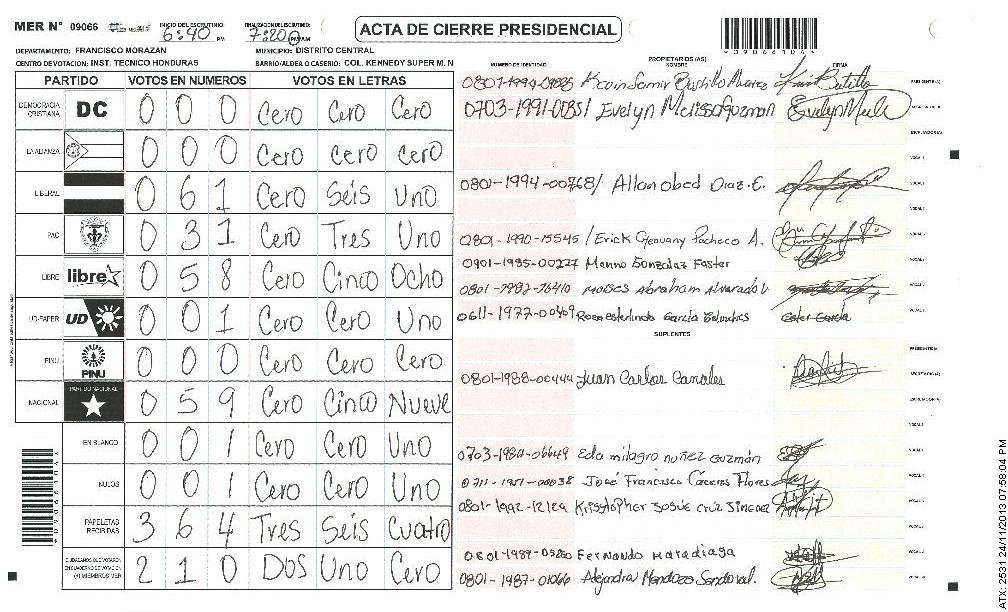 MER N° 09066 INICIO DEL ESCRUTINIO 6:40 PM FINALIZACION ESCRUTINIO 7:200 PM/AM ACTA DE CIERRE PRESIDENCIAL
DEPARTAMENTO: FRANCISCO MORAZAN MUNICIPIO: DISTRITO CENTRAL
CENTRO DE VOTACION: INST. TECNICO HONDURAS BARRIO/ALDEA O CASERIO: COL. KENNEDY SUPER M. N
PROPIETARIOS (AS)
NUMERO DE IDENTIDAD NOMBRE FIRMA
PARTIDO VOTOS EN NUMEROS VOTOS EN LETRAS
DEMOCRACIA CRISTIANA DC 0 0 0 Cero Cero Cero
LA ALIANZA 0 0 0 Cero Cero Cero
LIBERAL 0 6 1 Cero Seis Uno
PAC 0 3 1 Cero Tres Uno
LIBRE libre 0 5 8 Cero Cinco Ocho
UD-FAPER UD 0 0 1 Cero Cero Uno
PINU PINU 0 0 0 Cero Cero Cero
NACIONAL PARTIDO NACIONAL 0 5 9 Cero Cinco Nueve
EN BLANCO 0 0 1 Cero Cero Uno
NULOS 0 0 1 Cero Cero Uno
PAPELETAS RECIBIDAS 3 6 4 Tres Seis Cuatro
CIUDADANOS QUE VOTARON EN CUADERNO DE VOTACION (+) MIEMBROS MER 2 1 0 Dos Uno Cero
Kevin Samir Bustillo Alvarez
0703-1991- Evelyn Melissa Guzman
0801-1994-00768/ Allan obed Diaz.E.
0801-1990-15545 / Erick Geovany Pacheco A.
0901-1985-00227 Manno Gonzalaz Foster
Moises Abraham Alvarado V
0611-1977-00409 Garcia
SUPLENTES
0801-1988-00444 Juan Carlos Canales
Eda milagro nuñez Guzmán
José Francisco Caceres Flores
Kristopher Josué Cruz Jimenez
Fernando Maradiaga
0801-1987-01066 Alejandra Mendoza Sandoval.
ATX-2531 24/11/2013 07:58:04 PM